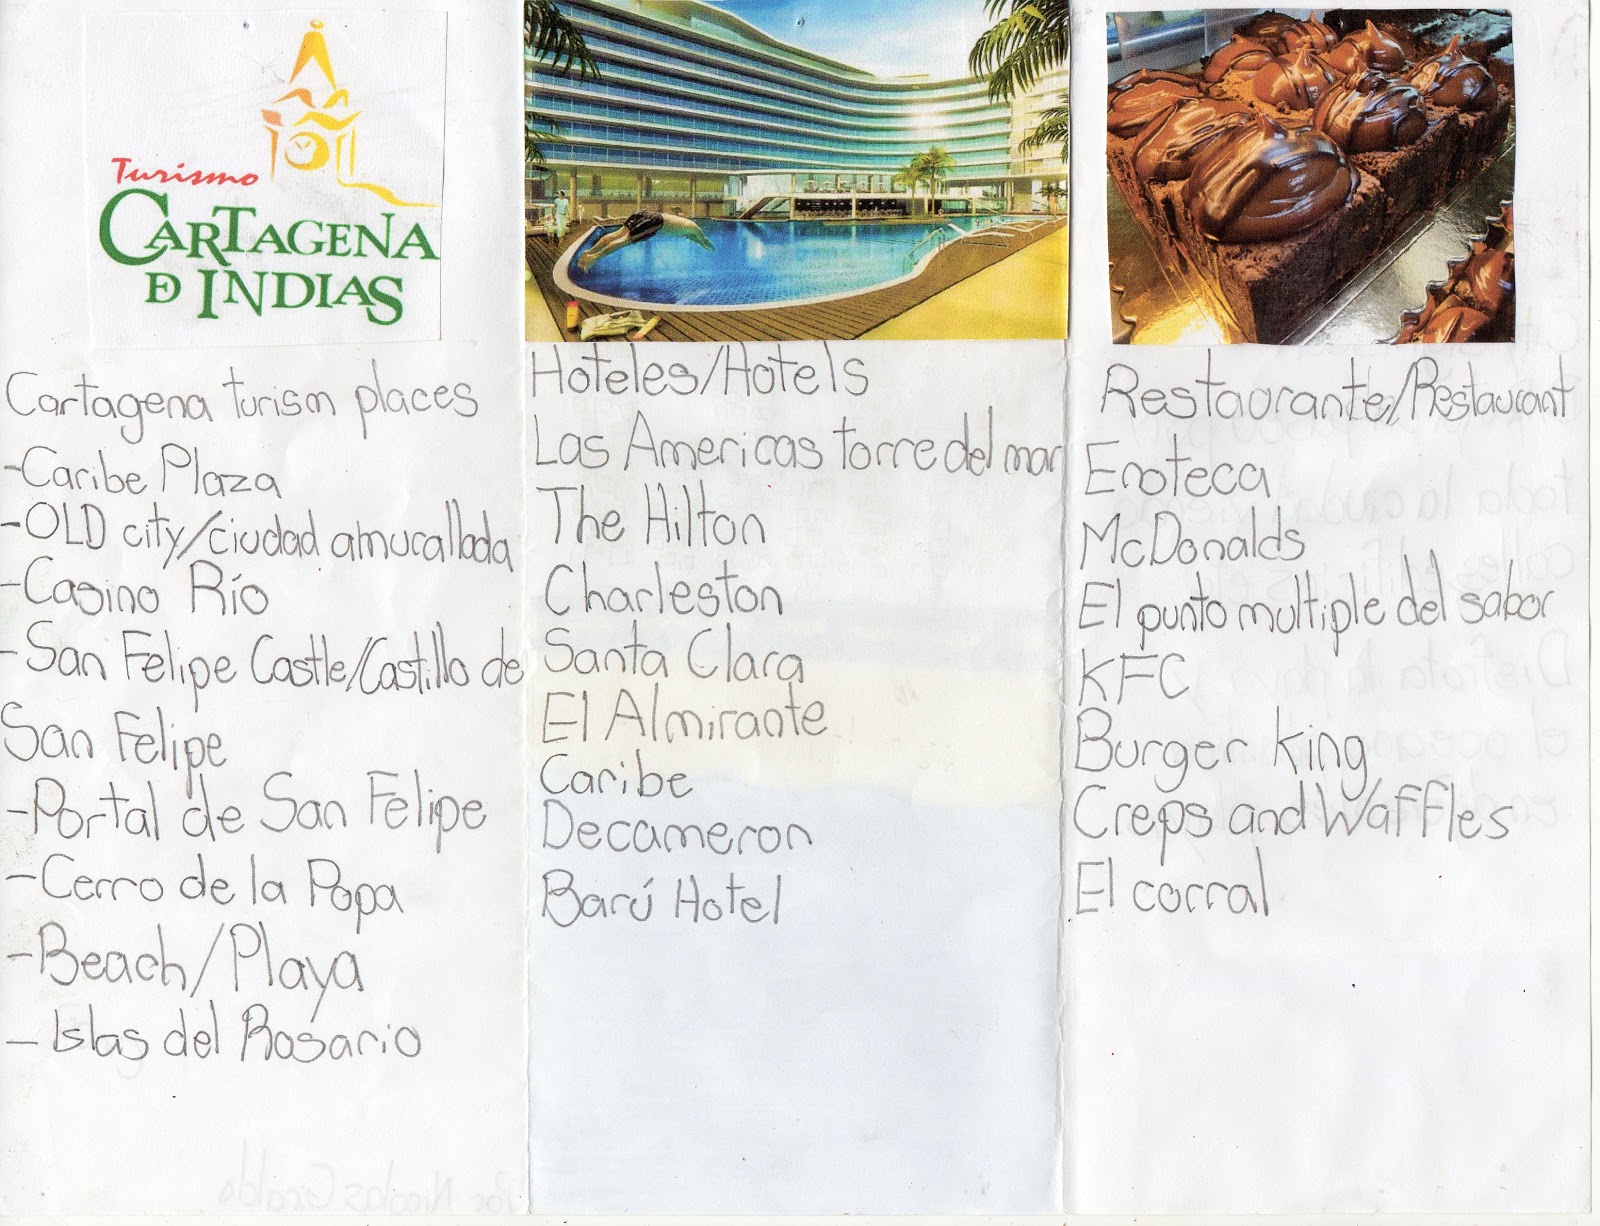 Turismo
CARTAGENA
DE INDIAS
Cartagena turism places
-Caribe Plaza
-OLD city/ciudad amurallada
-Casino Río
-San Felipe Castle/Castillo de
San Felipe
-Portal de San Felipe
-Cerro de la Popa
-Beach/Playa
-Islas del Rosario
Hoteles/Hotels
Las Americas torre del mar
The Hilton
Charleston
Santa Clara
El Almirante
Caribe
Decameron
Barú Hotel
Restaurante/Restaurant
Enoteca
McDonalds
El punto multiple del sabor
KFC
Burger king
Creps and Waffles
El corral